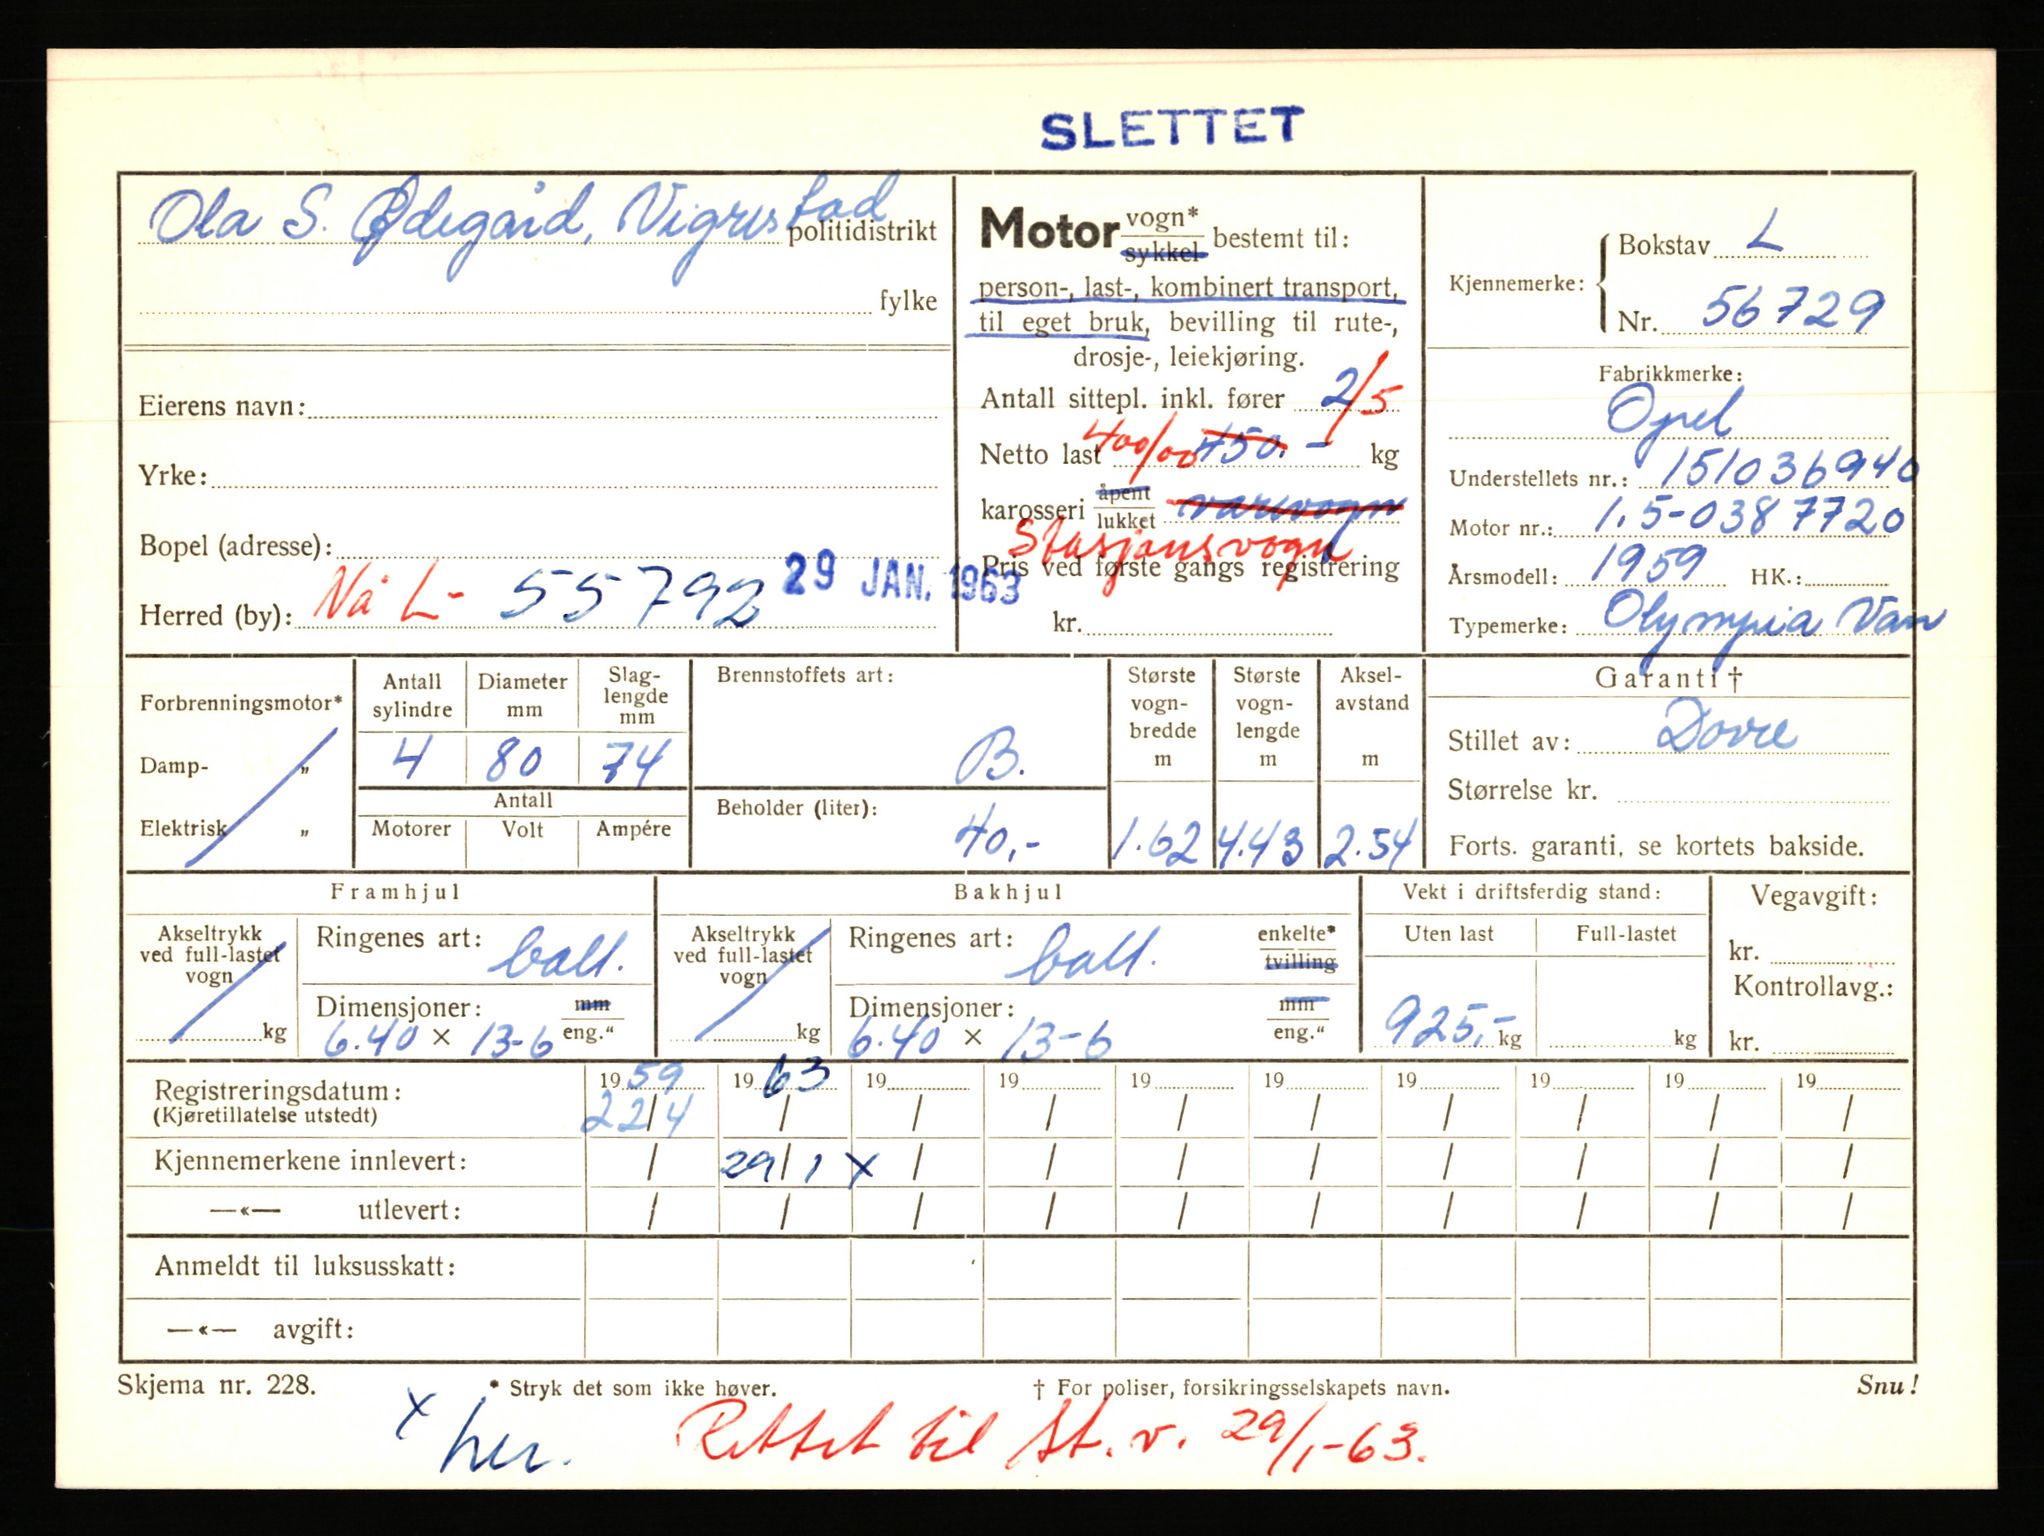 SLETTET
Ola S. Ødegård, Vigrestad
politidistrikt
fylke
Eierens navn:
Yrke:
Bopel (adresse):
29 JAN. 1963
Herred (by): Nå L- 55792
Motor vogn* sykkel bestemt til:
person-, last-, kombinert transport,
til eget bruk, bevilling til rute-,
drosje-, leiekjøring.
Antall sittepl. inkl. fører 2/5
Netto last 400/00 450.- kg
karosseri åpent lukket varevogn
Stasjonsvogn
Pris ved første gangs registrering
kr.
Kjennemerke: { Bokstav L
Nr. 56729
Fabrikkmerke:
Opel
Understellets nr.: 151036940
Motor nr.: 1.5-0387720
Årsmodell: 1959 HK.:
Typemerke: Olympia Van
Forbrenningsmotor*
Damp- „
Elektrisk „
Antall sylindre
Diameter mm
Slag-lengde mm
4 80 74
Antall
Motorer Volt Ampére
Brennstoffets art:
B.
Beholder (liter):
40,-
Største vogn-bredde m
1.62
Største vogn-lengde m
4.43
Aksel-avstand m
2.54
Garanti †
Stillet av: Dovre
Størrelse kr.
Forts. garanti, se kortets bakside.
Framhjul
Akseltrykk
ved full-lastet
vogn
kg
Ringenes art: ball.
Dimensjoner: mm
6.40 × 13-6 eng.“
Bakhjul
Akseltrykk
ved full-lastet
vogn
kg
Ringenes art: ball. enkelte* tvilling
Dimensjoner: mm
6.40 × 13-6 eng.“
Vekt i driftsferdig stand:
Uten last Full-lastet
925,- kg kg
Vegavgift:
kr.
Kontrollavg.:
kr.
Registreringsdatum: 1959 1963 19 19 19 19 19 19 19 19
(Kjøretillatelse utstedt) 22/4 / / / / / / / / /
Kjennemerkene innlevert: / 29/1 x / / / / / / / /
—«— utlevert: / / / / / / / / / /
Anmeldt til luksusskatt:
—«— avgift:
Skjema nr. 228. * Stryk det som ikke høver. † For poliser, forsikringsselskapets navn. Snu!
x her. Rettet til st.v. 29/1-63.